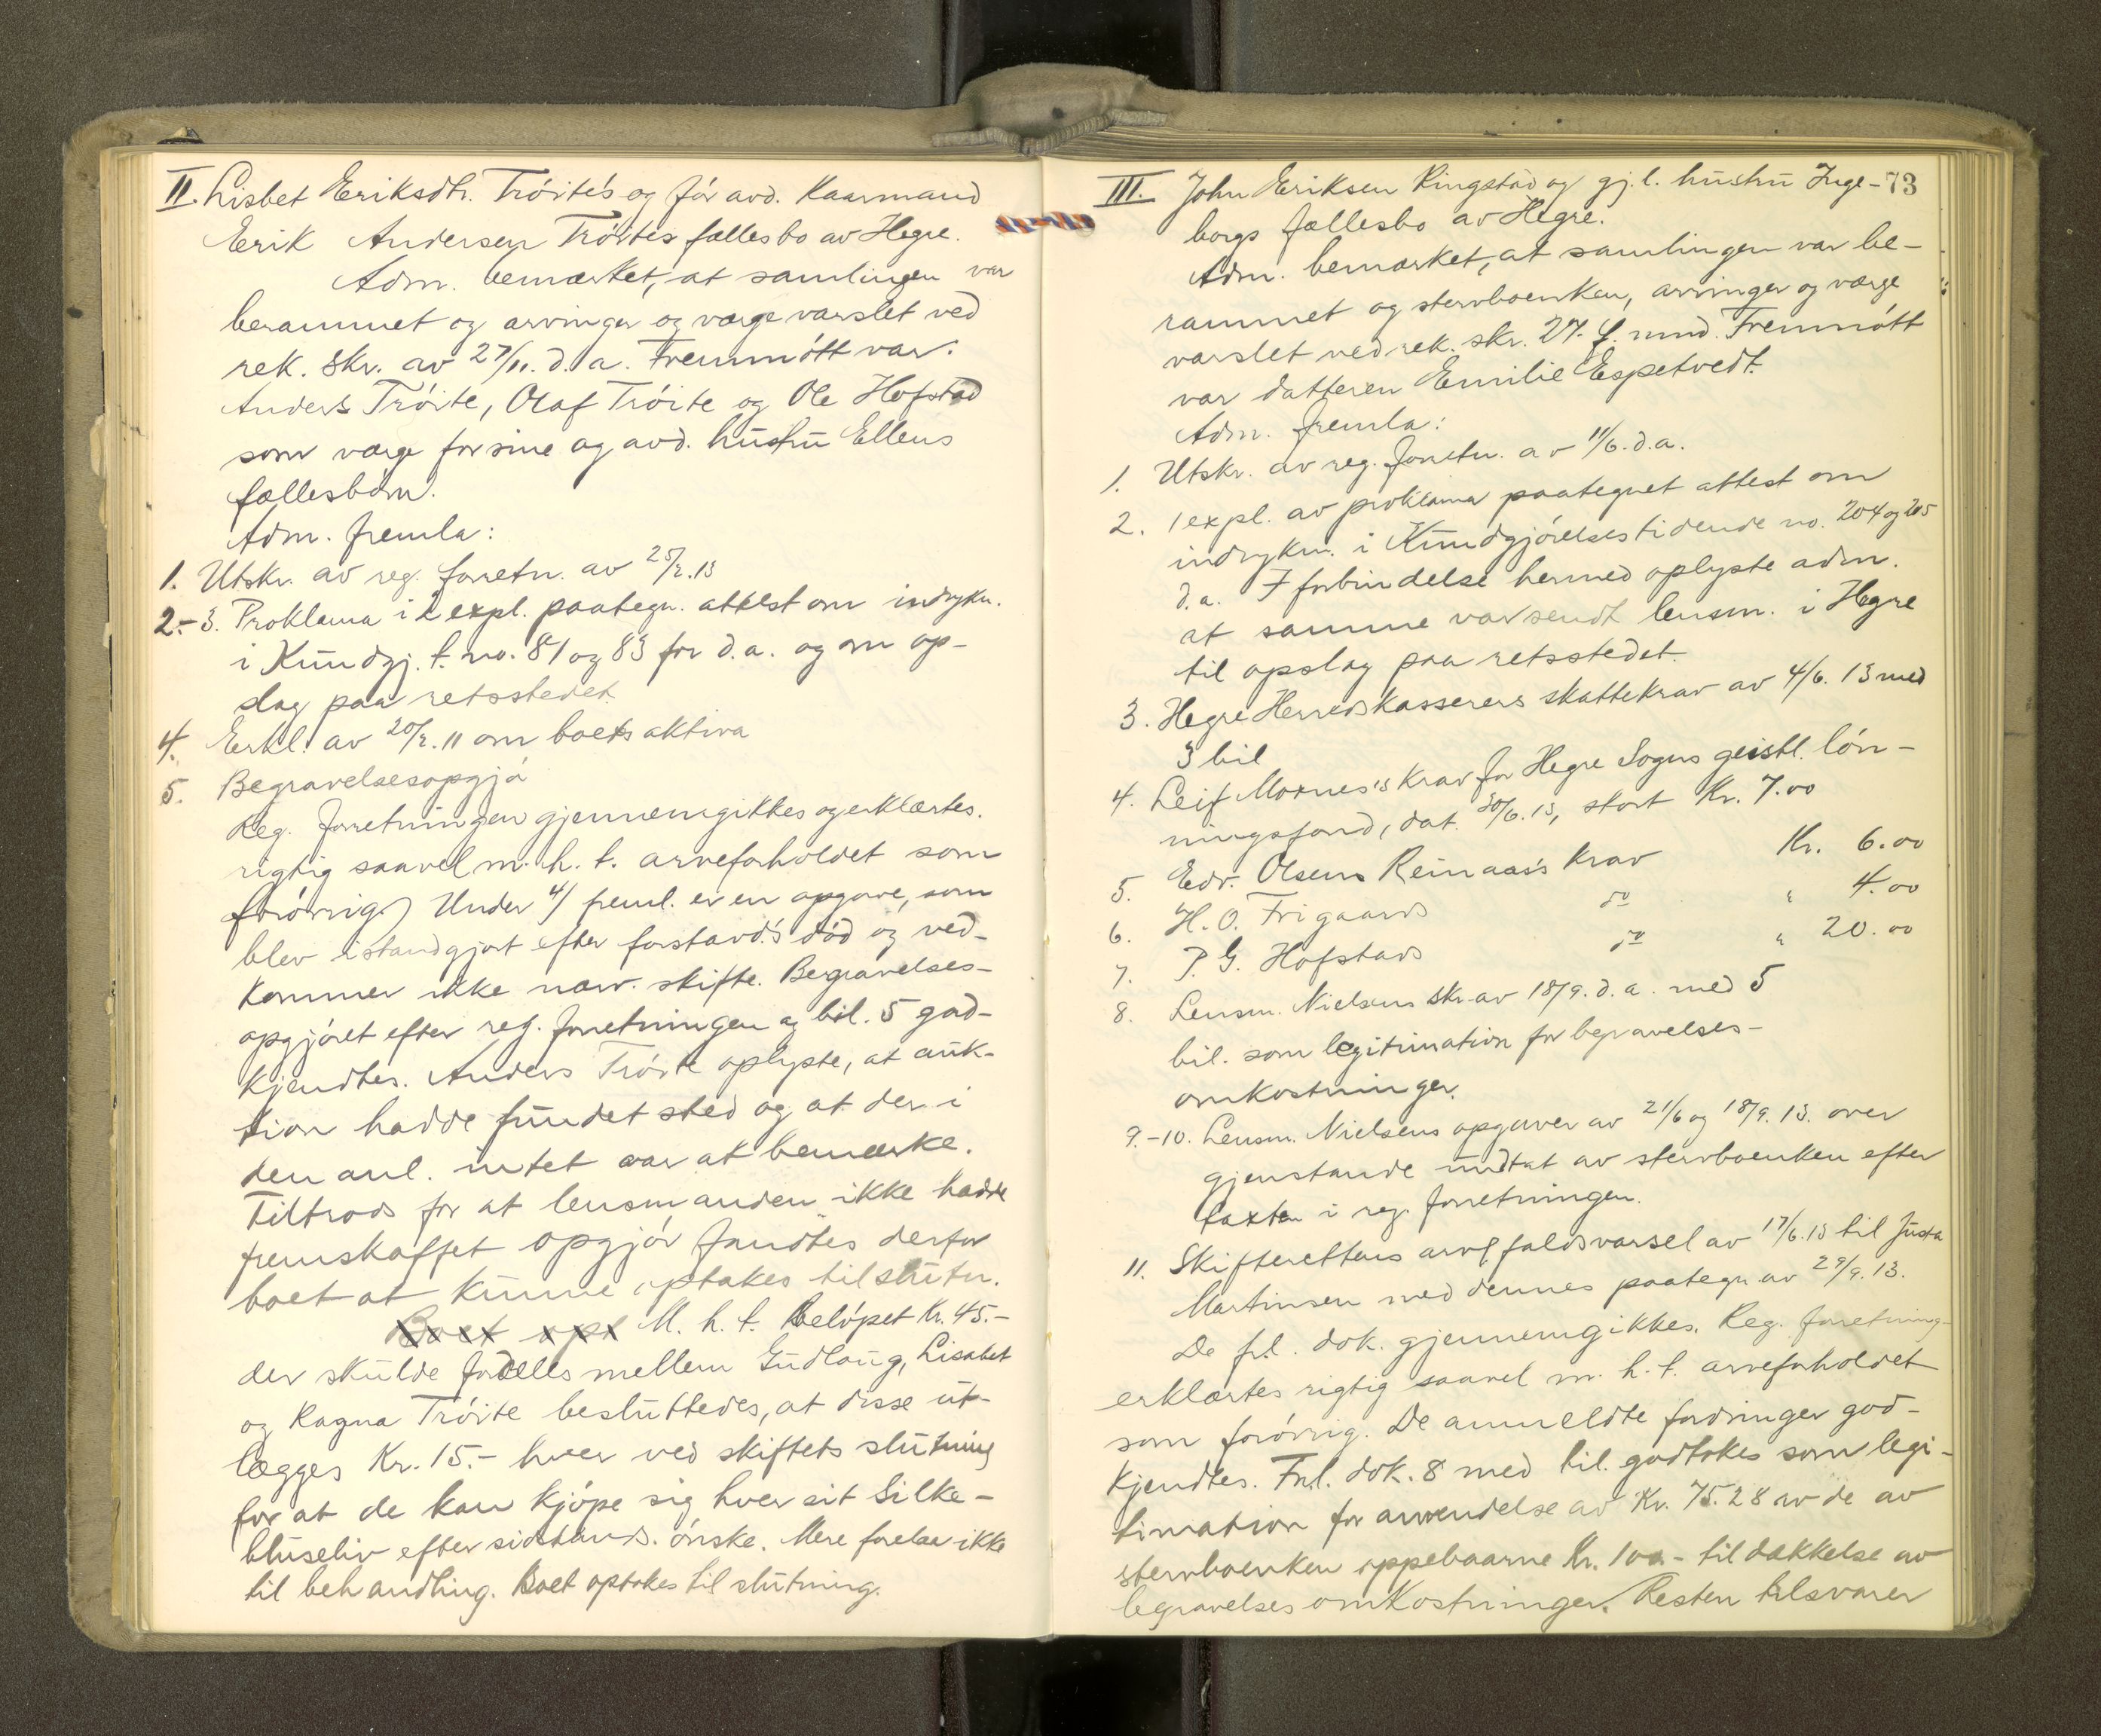 II. Lisbet Eriksdtr. Tróite's og før avd. Kaarmand
Erik Andersen Tróites fællesbo av Hegre.
Adm. bemærket, at samlingen var
berammet og arvinger og værge varslet ved
rek. skr. av 27/11. d. a. Fremmótt var:
Anders Tróite, Olaf Tróite og Ole Hofstad
som værge for sine og avd. hustru Ellens
fællesbarn.
Adm. fremla:
1. Utskr. av reg. forretn. av 25/2.13
2.-3. Proklama i 2 expl. paategn. attest om indrykn.
i Kundgj. t. no. 81 og 83 for d.a. og om op-
slag paa retsstedet.
4. Erkl. av 20/2.11 om boets aktiva
5. Begravelsesopgjó
Reg. forretningen gjennemgikkes og erklærtes.
rigtig saavel m. h. t. arveforholdet som
forøvrig. Under 4/ freml. er en opgave, som
blev istandgjort efter førstavd.'s død og ved-
kommer ikke nærv. skifte. Begravelses-
opgjóret efter reg. forretningen og bil. 5 god-
kjendtes. Anders Tróite oplyste, at auk-
tion hadde fundet sted og at der i
den anl. intet var at bemærke.
Tiltrods for at lensmanden ikke hadde
fremskaffet opgjór fandtes derfor
boet at kunne optakes til slutn.
Boet opt M. h. t. beløpet Kr. 45.-
der skulde fordeles mellem Gudlaug, Lisabet
og Ragna Tróite besluttedes, at disse ut-
lægges Kr. 15.- hver ved skiftets slutning
for at de kan kjópe sig hver sit silke-
bluseliv efter sidstavds. ónske. Mere forelaa ikke
til behandling. Boet optokes til slutning.
III. John Eriksen Ringstad og gj. l. hustru Inge- 73
borgs fællesbo av Hegre.
Adm. bemærket, at samlingen var be-
rammet og stervboenken, arvinger og værge
varslet ved rek. skr. 27. f. mnd. Fremmótt
var datteren Emilie Espetvedt.
Adm. fremla:
1. Utskr. av reg. forretn. av 11/6. d.a.
2. 1 expl. av proklama paategnet attest om
indrykn. i Kundgjórelsestidende no. 204 og 205
d.a. I forbindelse hermed oplyste adm.
at samme var sendt lensm. i Hegre
til opslag paa retsstedet.
3. Hegre Herredskasserers skattekrav av 4/6. 13 med
3 bil
4. Leif Moxnes's krav for Hegre Sogns geistl. lón-
ningsfond, dat. 30/6.13, stort Kr. 7.00
5. Edv. Olsens Reinaas's krav Kr. 6.00
6. H. O. Frigaards do " 4.00
7. P. G. Hofstads do " 20.00
8. Lensm. Nielsens skr. av 18/9. d. a. med 5
bil. som legitimation for begravelses-
omkostninger.
9.-10. Lensm. Nielsens opgaver av 21/6 og 18/9. 13. over
gjenstande undtat av stervboenken efter
taxten i reg. forretningen.
11. Skifterettens arvefaldsvarsel av 17/6.13 til Justa
Martinsen med dennes paategn. av 29/9. 13.
De frl. dok. gjennemgikkes. Reg. forretning-
erklærtes rigtig saavel m. h. t. arveforholdet
som forøvrig. De anmeldte fordringer god-
kjendtes. Frl. dok. 8 med bil. godtokes som legi-
timation for anvendelse av Kr. 75.28 av de av
stervboenken oppebaarne Kr. 100.- til dækkelse av
begravelsesomkostninger. Resten tilsvarer